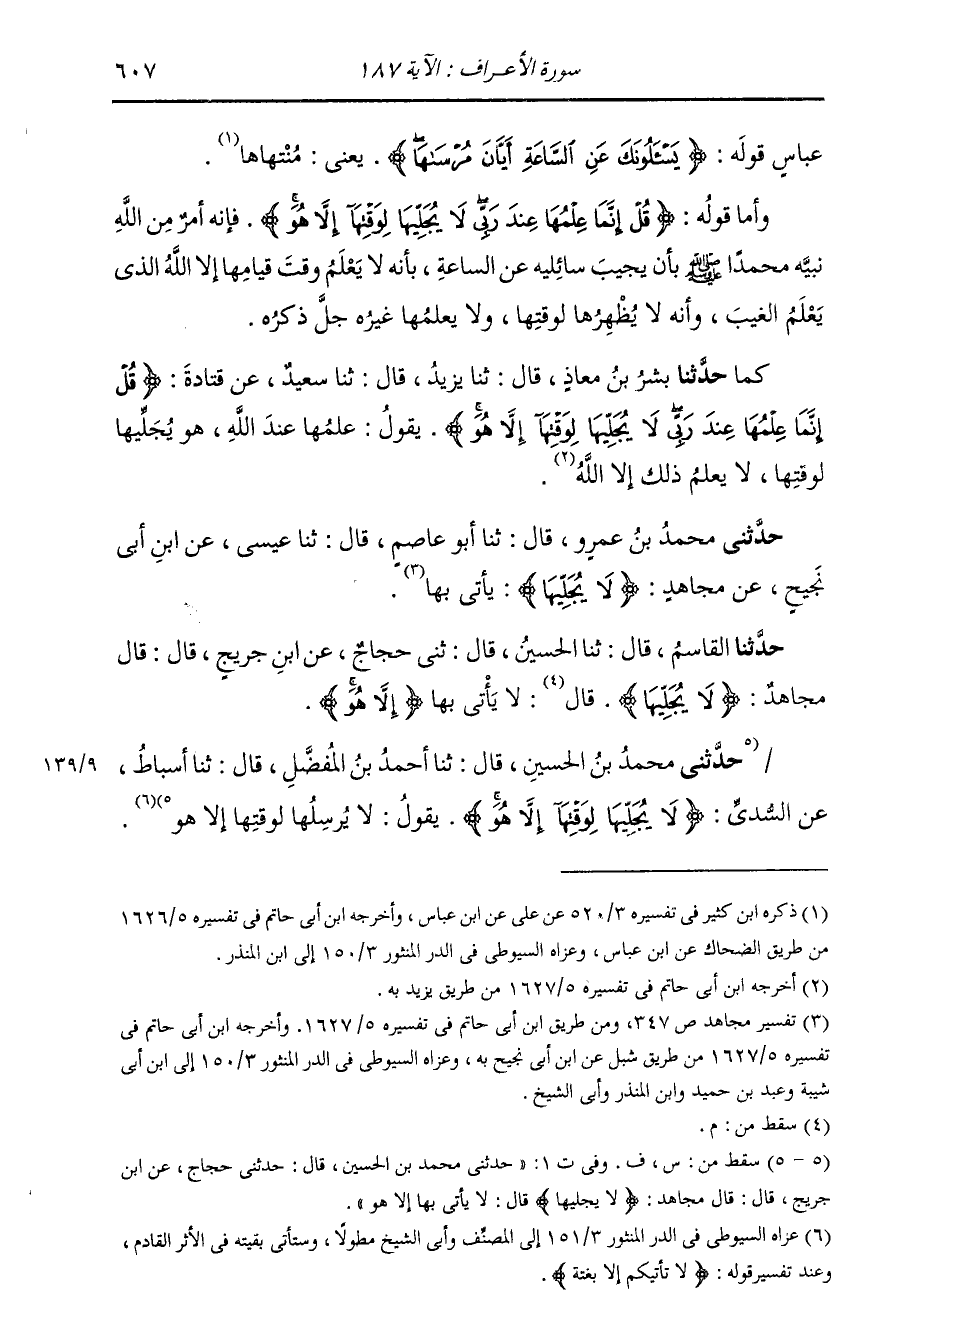 سورة الأعراف : الآية ١٨٧
٦٠٧
عباسٍ قولَه : ﴿ يَسْـَٔلُونَكَ عَنِ ٱلسَّاعَةِ أَيَّانَ مُرْسَىٰهَا ﴾ . يعنى : مُنْتهاها(١) .
وأما قولُه : ﴿ قُلْ إِنَّمَا عِلْمُهَا عِندَ رَبِّىۖ لَا يُجَلِّيهَا لِوَقْتِهَآ إِلَّا هُوَۚ ﴾ . فإنه أمرٌ مِن اللَّهِ
نبيَّه محمدًا ﷺ بأن يجيبَ سائِليه عن الساعةِ ، بأنه لا يَعْلَمُ وقتَ قيامِها إلا اللَّهُ الذى
يَعْلَمُ الغيبَ ، وأنه لا يُظْهِرُها لوقتِها ، ولا يعلمُها غيرُه جلَّ ذكرُه .
كما حدَّثنا بشرُ بنُ معاذٍ ، قال : ثنا يزيدُ ، قال : ثنا سعيدٌ ، عن قتادةَ : ﴿ قُلْ
إِنَّمَا عِلْمُهَا عِندَ رَبِّىۖ لَا يُجَلِّيهَا لِوَقْتِهَآ إِلَّا هُوَۚ ﴾ . يقولُ : علمُها عندَ اللَّهِ ، هو يُجَلِّيها
لوقتِها ، لا يعلمُ ذلك إلا اللَّهُ(٢) .
حدَّثنى محمدُ بنُ عمرٍو ، قال : ثنا أبو عاصمٍ ، قال : ثنا عيسى ، عن ابنِ أبى
نَجيحٍ ، عن مجاهدٍ : ﴿ لَا يُجَلِّيهَا ﴾ : يأتى بها(٣) .
حدَّثنا القاسمُ ، قال : ثنا الحسينُ ، قال : ثنى حجاجٌ ، عن ابنِ جريجٍ ، قال : قال
مجاهدٌ : ﴿ لَا يُجَلِّيهَا ﴾ . قال(٤) : لا يَأْتى بها ﴿ إِلَّا هُوَۚ ﴾ .
/ (٥حدَّثنى محمدُ بنُ الحسينِ ، قال : ثنا أحمدُ بنُ المُفضَّلِ ، قال : ثنا أسباطُ ، ١٣٩/٩
عن السُّدىِّ : ﴿ لَا يُجَلِّيهَا لِوَقْتِهَآ إِلَّا هُوَۚ ﴾ . يقولُ : لا يُرسِلُها لوقتِها إلا هو٥)(٦) .
(١) ذكره ابن كثير فى تفسيره ٥٢٠/٣ عن على عن ابن عباس ، وأخرجه ابن أبى حاتم فى تفسيره ١٦٢٦/٥
من طريق الضحاك عن ابن عباس ، وعزاه السيوطى فى الدر المنثور ١٥٠/٣ إلى ابن المنذر .
(٢) أخرجه ابن أبى حاتم فى تفسيره ١٦٢٧/٥ من طريق يزيد به .
(٣) تفسير مجاهد ص ٣٤٧، ومن طريق ابن أبى حاتم فى تفسيره ١٦٢٧/٥. وأخرجه ابن أبى حاتم فى
تفسيره ١٦٢٧/٥ من طريق شبل عن ابن أبى نجيح به ، وعزاه السيوطى فى الدر المنثور ١٥٠/٣ إلى ابن أبى
شيبة وعبد بن حميد وابن المنذر وأبى الشيخ .
(٤) سقط من : م .
(٥ - ٥) سقط من : س ، ف . وفى ت ١: « حدثنى محمد بن الحسين ، قال : حدثنى حجاج ، عن ابن
جريج ، قال : قال مجاهد : ﴿ لا يجليها ﴾ قال : لا يأتى بها إلا هو » .
(٦) عزاه السيوطى فى الدر المنثور ١٥١/٣ إلى المصنِّف وأبى الشيخ مطولًا ، وستأتى بقيته فى الأثر القادم ،
وعند تفسيرقوله : ﴿ لا تأتيكم إلا بغتة ﴾ .